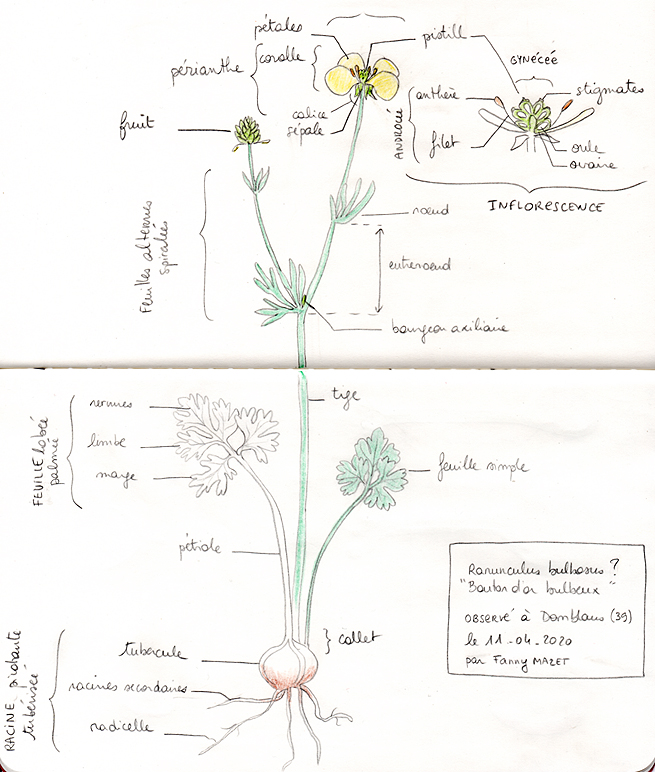 pétales
pistill
corolle
périanthe
GYNÉCÉE
stigmates
anthère
calice
sépale
fruit
ANDROCÉE
filet
ovule
ovaire
INFLORESCENCE
nœud
Feuilles alternes
spiralées
entrenœud
bourgeon axiliaire
tige
nervures
limbe
marge
FEUILLE lobée
palmée
feuille simple
pétiole
Ranunculus bulbosus ?
"Bouton d'or bulbeux"
OBSERVÉ à Domblans (39)
le 11-04-2020
par Fanny MAZET
collet
tubercule
racines secondaires
radicelle
RACINE pivotante
tubérisée